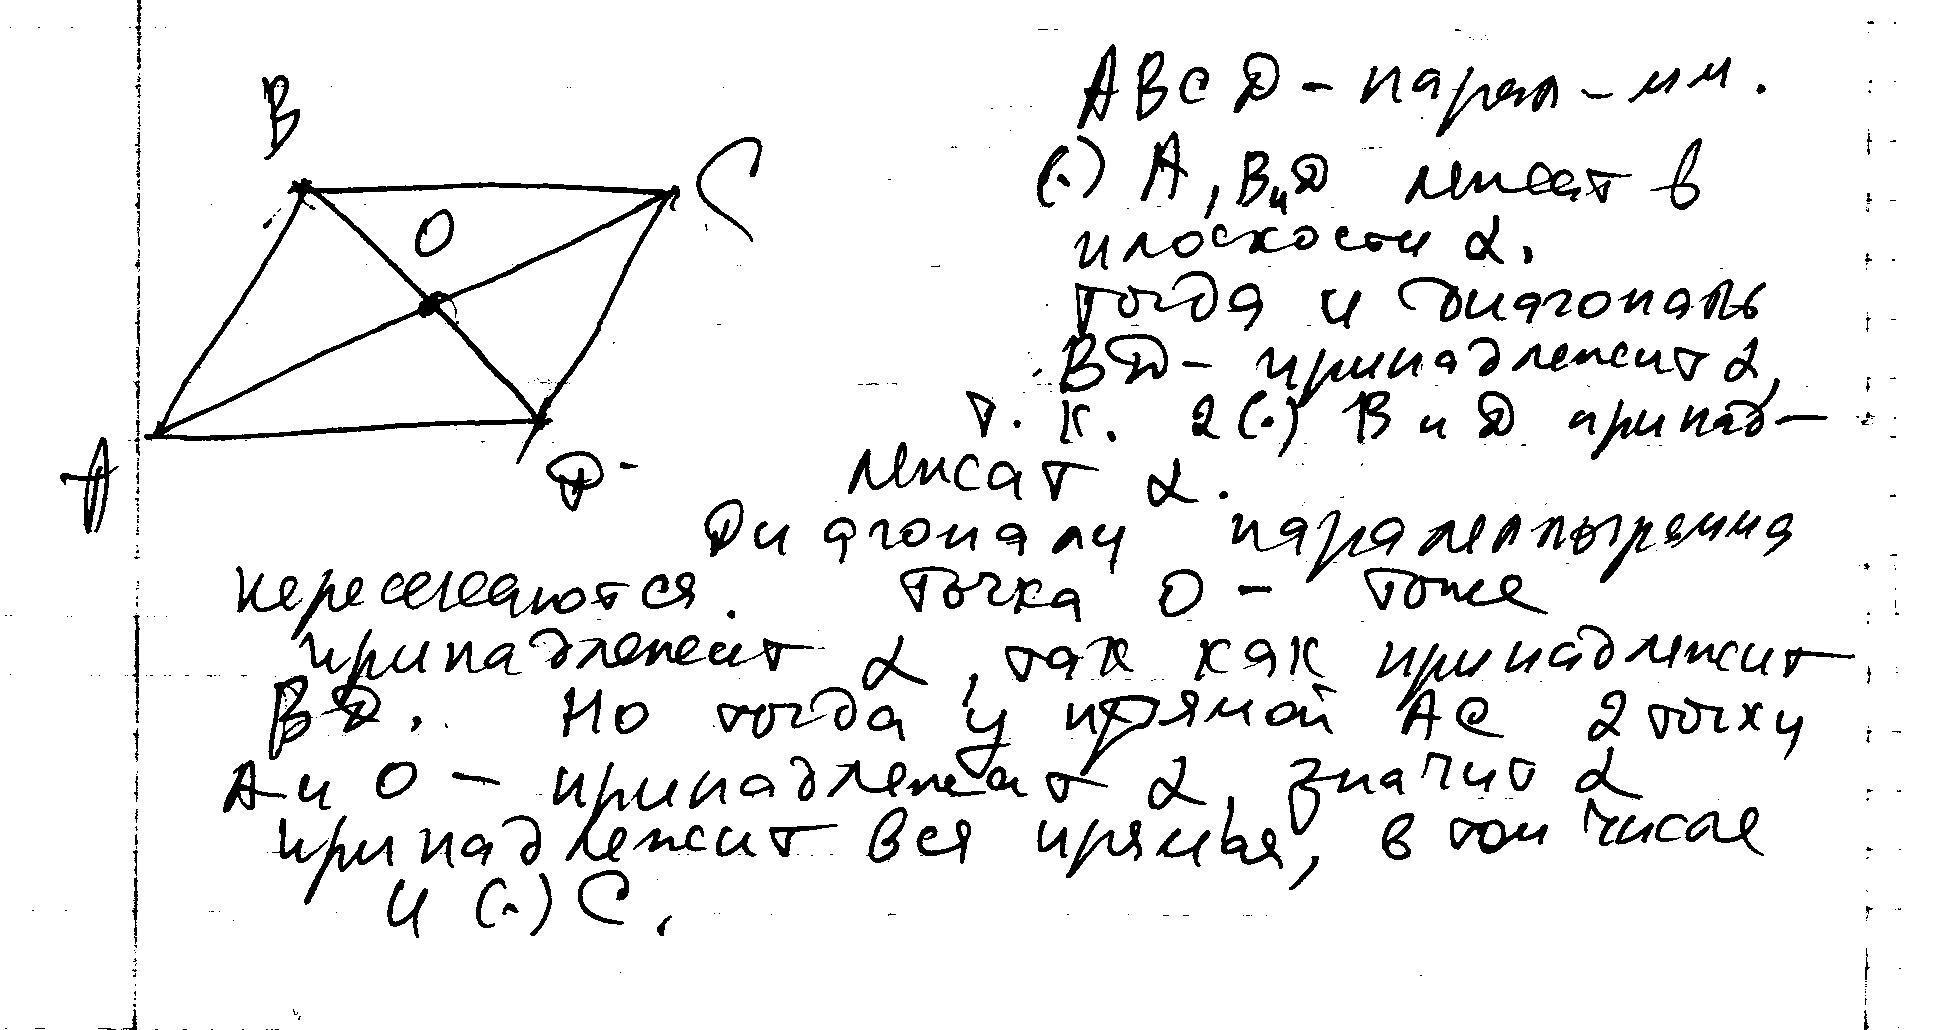 B
C
O
A
D
ABCD - парал-мм.
(.) A, B и D лежат в
плоскости α.
тогда и диагональ
BD - принадлежит α,
т. к. 2 (.) B и D принад-
лежат α.
Диагонали параллелограмма
пересекаются. Точка O - тоже
принадлежит α, так как принадлежит
BD. Но тогда у прямой AC 2 точки
A и O - принадлежат α, значит α
принадлежит вся прямая, в том числе
и (.) C.